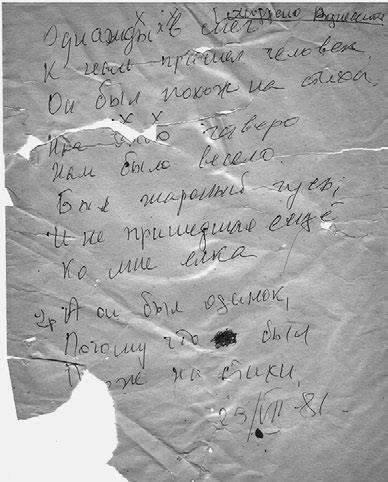 Однажды в снег
К нам пришёл человек,
Он был похож на стихи.
Нас было четверо
Нам было весело.
Был жареный гусь,
И не пришедшая ещё
Ко мне ёлка
2р А он был одинок,
Потому что был
Похож на стихи.
29/VII-81